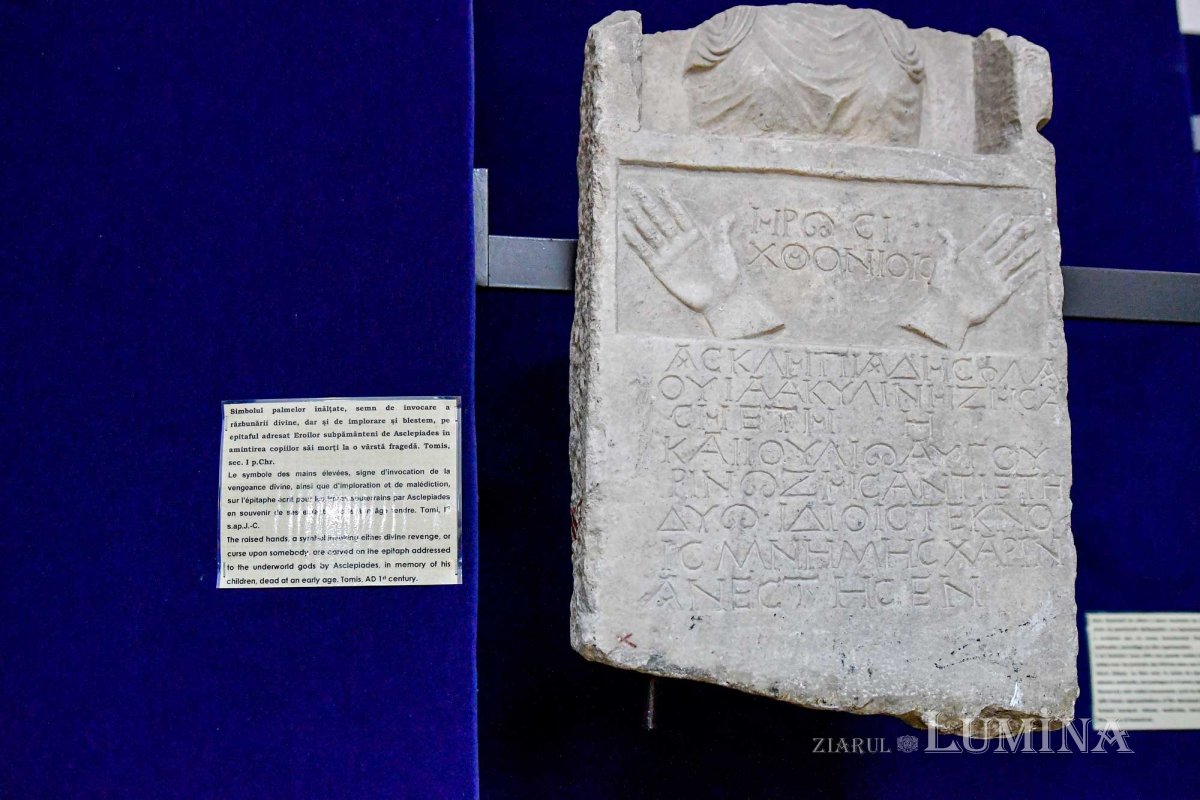 Simbolul palmelor înălțate, semn de invocare a
răzbunării divine, dar și de implorare și blestem, pe
epitaful adresat Eroilor subpământeni de Asclepiades în
amintirea copiilor săi morți la o vârstă fragedă. Tomis,
sec. I p.Chr.
Le symbole des mains élevées, signe d'invocation de la
vengeance divine, ainsi que d'imploration et de malédiction,
sur l'épitaphe écrit pour les souterrains par Asclepiades
en souvenir de ses âge tendre. Tomi,
s.ap.J.-C.
The raised hands, a symbol invoking either divine revenge, or
curse upon somebody, are carved on the epitaph addressed
to the underworld gods by Asclepiades, in memory of his
children, dead at an early age. Tomis, AD 1st century.
ΗΡΩΣΙ
ΧΘΟΝΙΟΙϹ
ΑϹΚΛΗΠΙΑΔΗϹ ΦΛΑ
ΟΥΙΑ ΑΚΥΛΙΝΗ ΖΗϹΑ
ϹΗ ΕΤΗ Η
ΚΑΙ ΙΟΥΛΙΩ ΑΥΓΟΥ
ΡΙΝΩ ΖΗϹΑΝΤΙ ΕΤΗ
ΔΥΩ ΙΔΙΟΙϹ ΤΕΚΝΟ
ΙϹ ΜΝΗΜΗϹ ΧΑΡΙΝ
ΑΝΕϹΤΗϹΕΝ
ZIARUL LUMINA